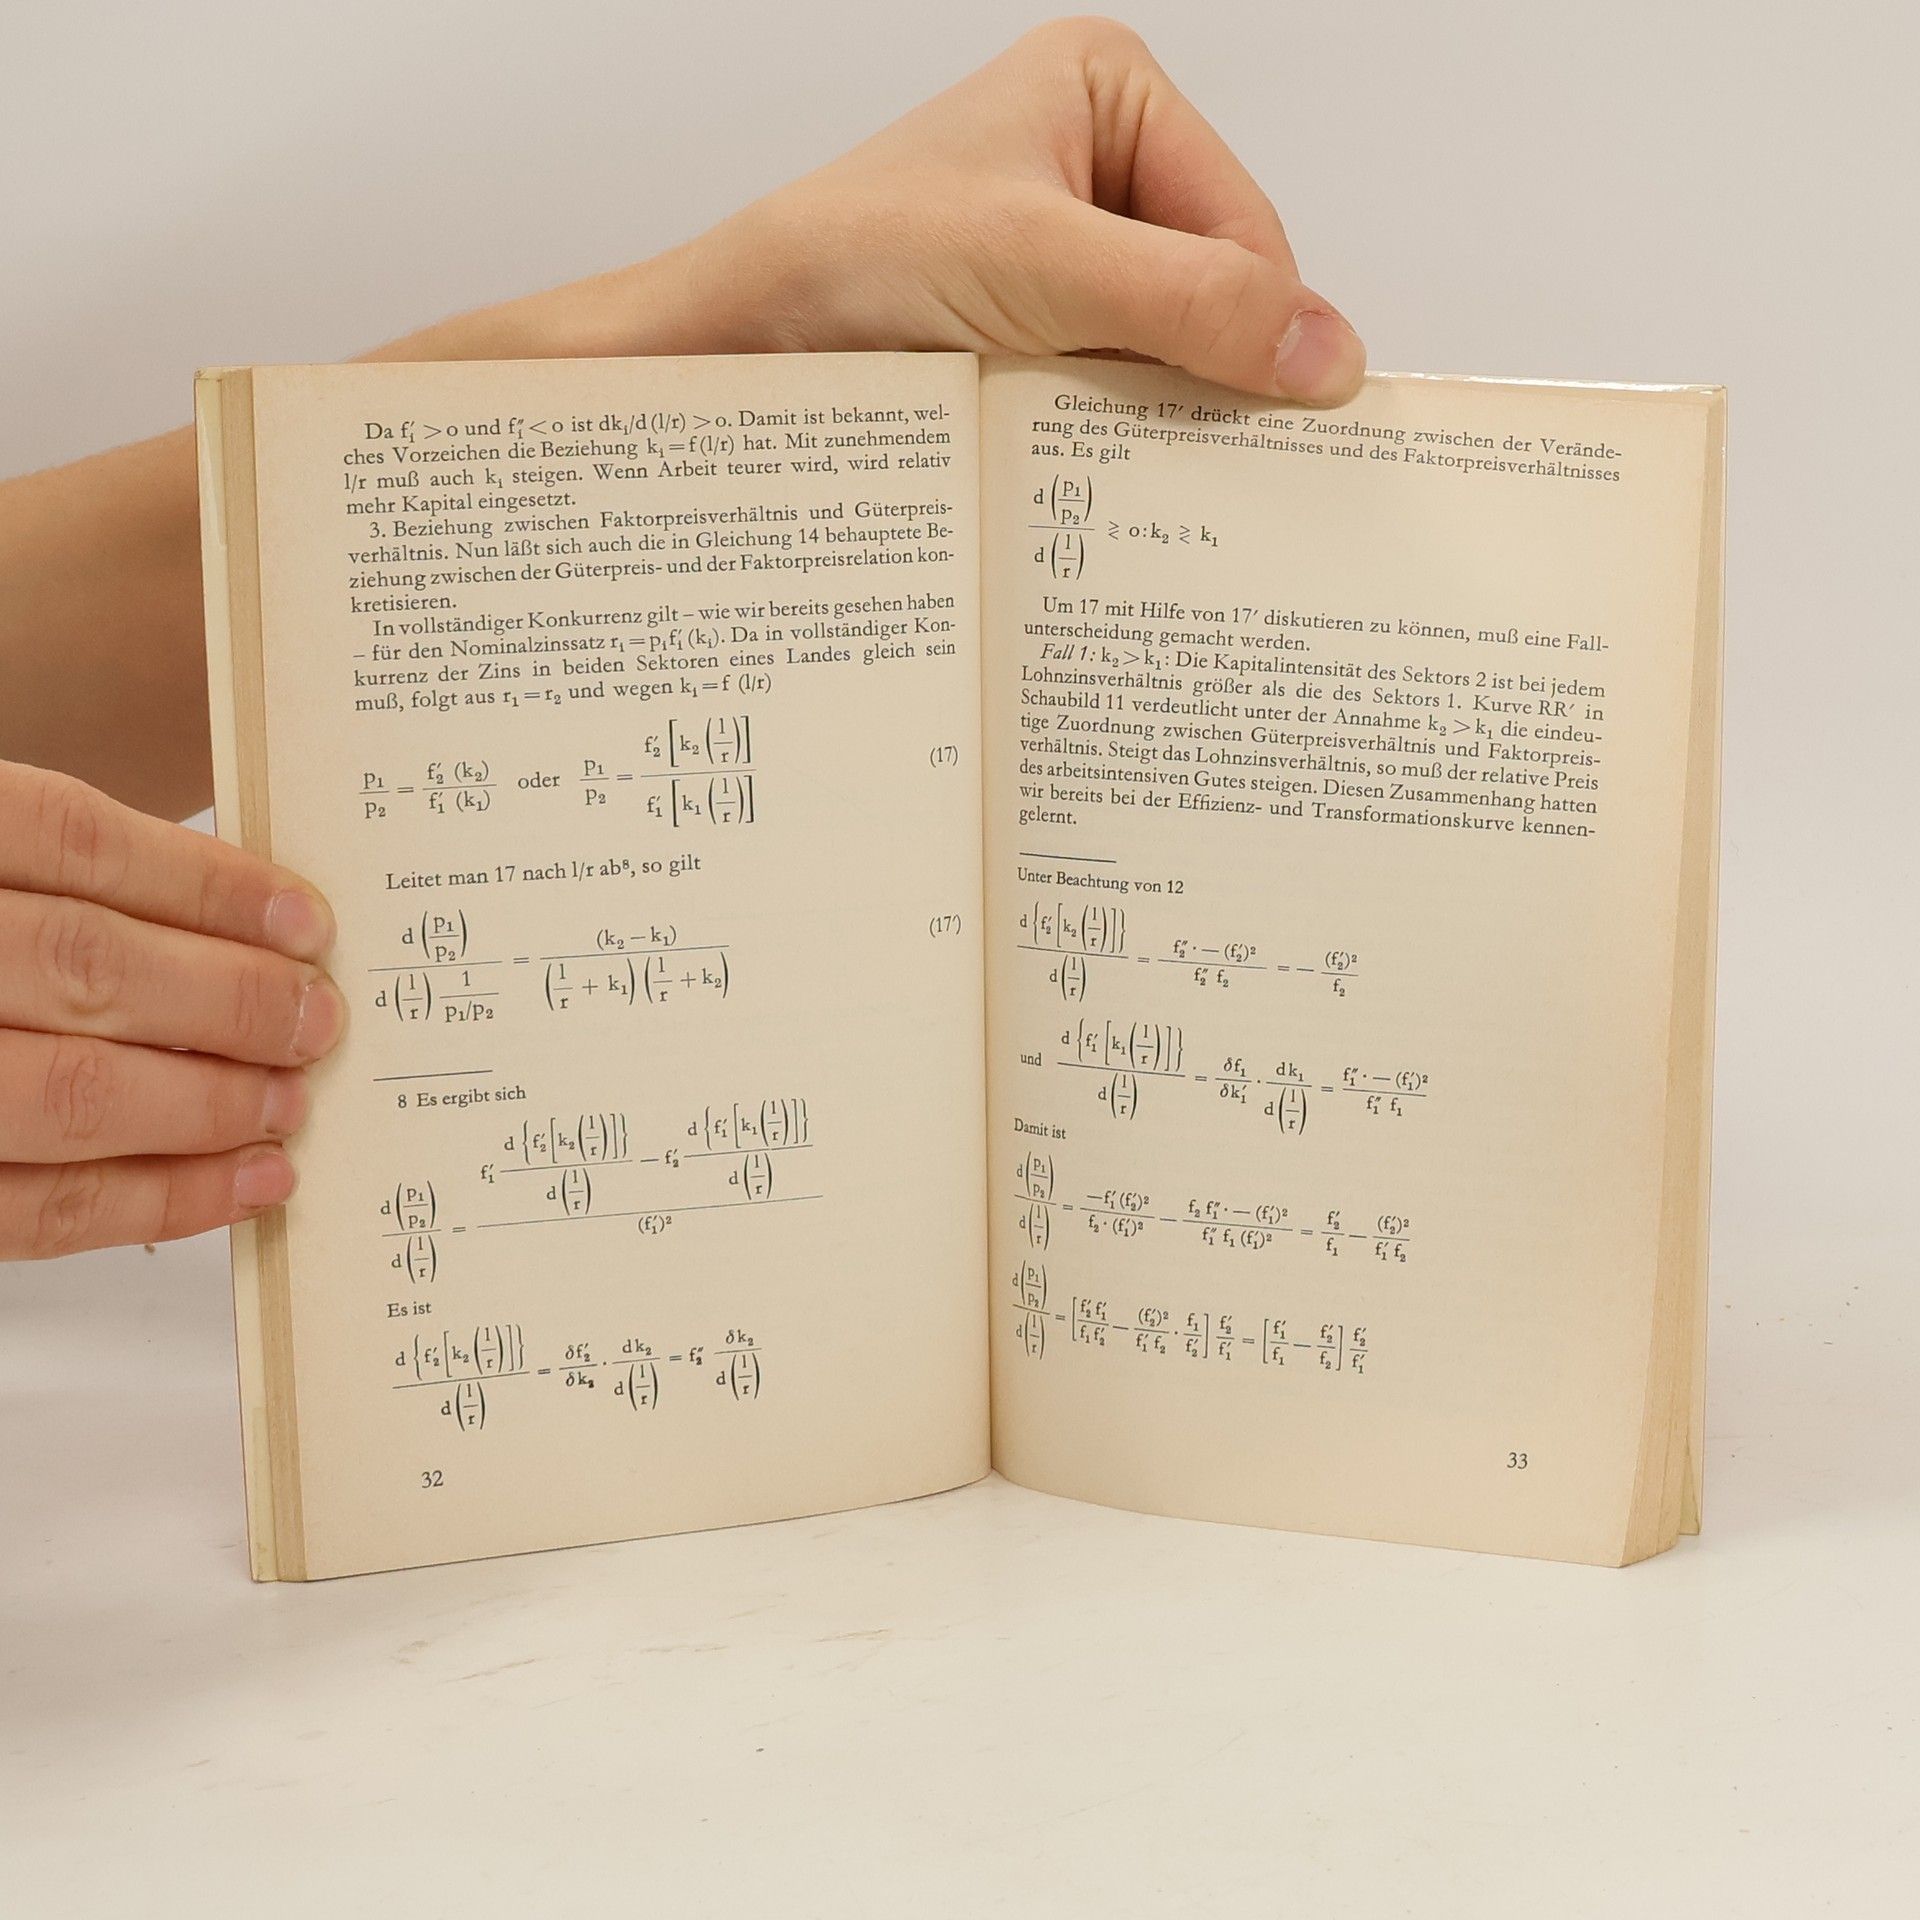 Da f₁′ >0 und f₁″<0 ist dk₁/d (l/r) >0. Damit ist bekannt, wel-
ches Vorzeichen die Beziehung k₁=f (l/r) hat. Mit zunehmendem
l/r muß auch k₁ steigen. Wenn Arbeit teurer wird, wird relativ
mehr Kapital eingesetzt.
3. Beziehung zwischen Faktorpreisverhältnis und Güterpreis-
verhältnis. Nun läßt sich auch die in Gleichung 14 behauptete Be-
ziehung zwischen der Güterpreis- und der Faktorpreisrelation kon-
kretisieren.
In vollständiger Konkurrenz gilt – wie wir bereits gesehen haben
– für den Nominalzinssatz r₁=p₁f₁′ (k₁). Da in vollständiger Kon-
kurrenz der Zins in beiden Sektoren eines Landes gleich sein
muß, folgt aus r₁=r₂ und wegen k₁=f (l/r)
p₁/p₂ = f₂′ (k₂)/f₁′ (k₁) oder p₁/p₂ = f₂′ [k₂ (l/r)]/f₁′ [k₁ (l/r)] (17)
Leitet man 17 nach l/r ab⁸, so gilt
d (p₁/p₂) / d (l/r) 1/(p₁/p₂) = (k₂ – k₁) / (l/r + k₁) (l/r + k₂) (17′)
8 Es ergibt sich
d (p₁/p₂) / d (l/r) = f₁′ d {f₂′ [k₂ (l/r)]} / d (l/r) – f₂′ d {f₁′ [k₁ (l/r)]} / d (l/r) / (f₁′)²
Es ist
d {f₂′ [k₂ (l/r)]} / d (l/r) = δf₂′/δk₂ · dk₂ / d (l/r) = f₂″ δk₂ / d (l/r)
32
Gleichung 17′ drückt eine Zuordnung zwischen der Verände-
rung des Güterpreisverhältnisses und des Faktorpreisverhältnisses
aus. Es gilt
d (p₁/p₂) / d (l/r) ⪌ 0: k₂ ⪌ k₁
Um 17 mit Hilfe von 17′ diskutieren zu können, muß eine Fall-
unterscheidung gemacht werden.
Fall 1: k₂>k₁: Die Kapitalintensität des Sektors 2 ist bei jedem
Lohnzinsverhältnis größer als die des Sektors 1. Kurve RR′ in
Schaubild 11 verdeutlicht unter der Annahme k₂ >k₁ die eindeu-
tige Zuordnung zwischen Güterpreisverhältnis und Faktorpreis-
verhältnis. Steigt das Lohnzinsverhältnis, so muß der relative Preis
des arbeitsintensiven Gutes steigen. Diesen Zusammenhang hatten
wir bereits bei der Effizienz- und Transformationskurve kennen-
gelernt.
Unter Beachtung von 12
d {f₂′ [k₂ (l/r)]} / d (l/r) = f₂″ · – (f₂′)² / f₂″ f₂ = – (f₂′)² / f₂
und d {f₁′ [k₁ (l/r)]} / d (l/r) = δf₁/δk₁′ · dk₁ / d (l/r) = f₁″ · – (f₁′)² / f₁″ f₁
Damit ist
d (p₁/p₂) / d (l/r) = –f₁′ (f₂′)² / f₂ · (f₁′)² – f₂ f₁″ · – (f₁′)² / f₁″ f₁ (f₁′)² = f₂′/f₁ – (f₂′)² / f₁′ f₂
d (p₁/p₂) / d (l/r) = [f₂′ f₁′ / f₁ f₂′ – (f₂′)² / f₁′ f₂ · f₁/f₂′] f₂′/f₁′ = [f₁′/f₁ – f₂′/f₂] f₂′/f₁′
33